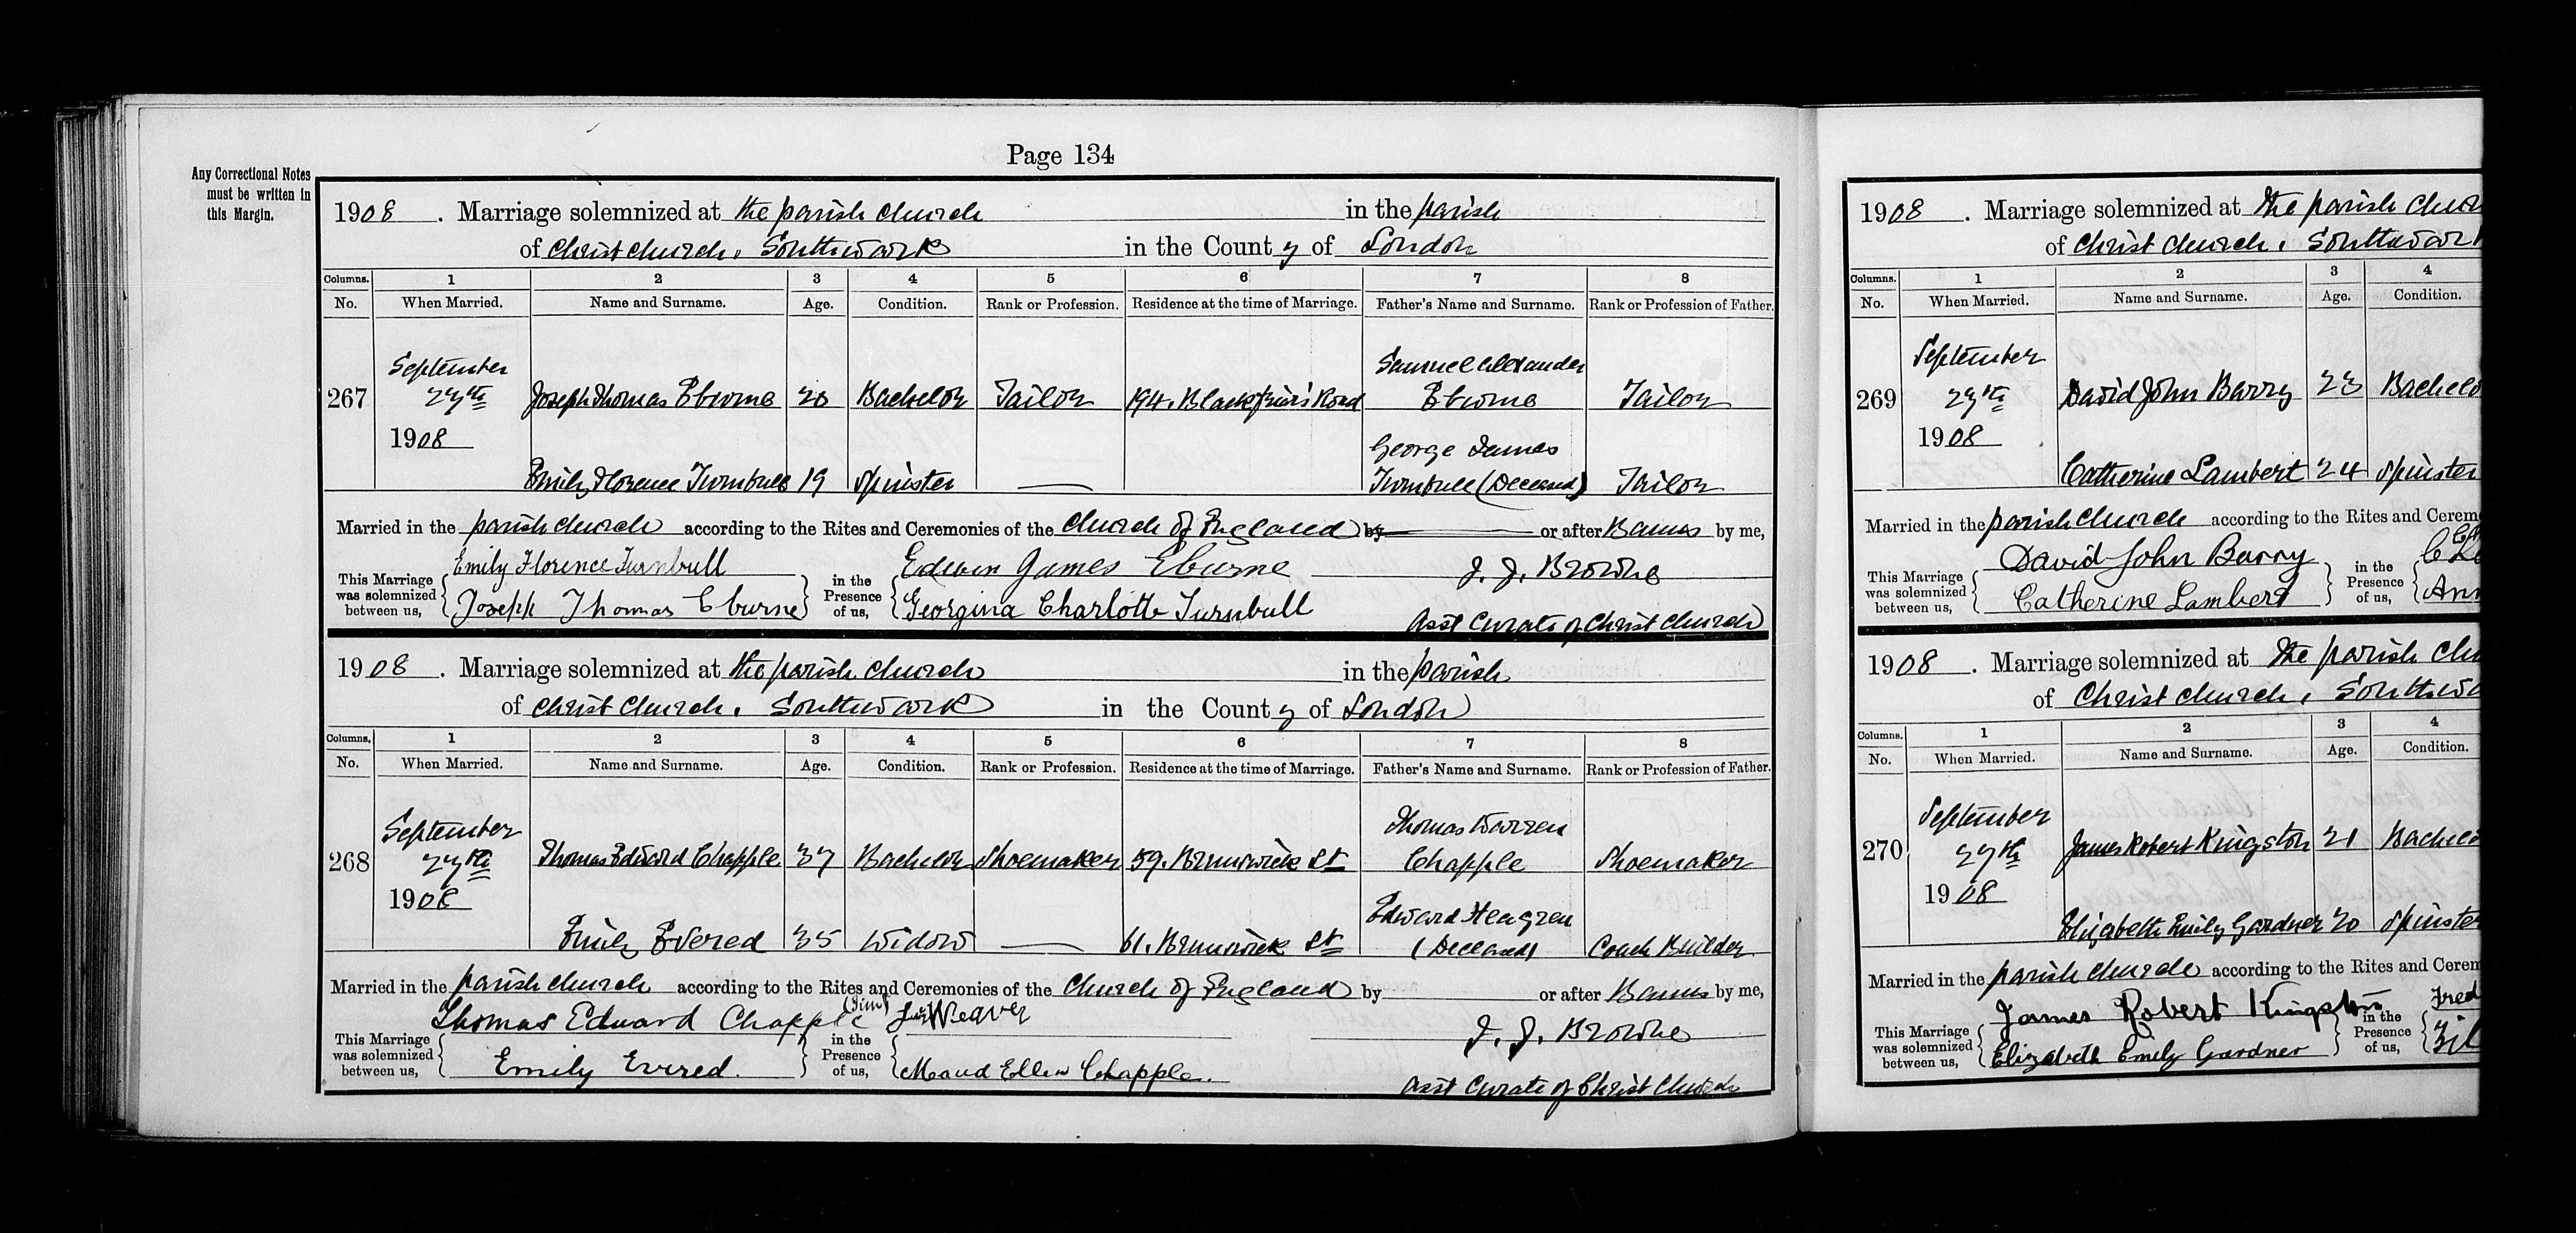 Page 134
Any Correctional Notes
must be written in
this Margin.
1908. Marriage solemnized at the parish church in the parish
of Christ Church, Southwark in the County of London
Columns. 1 2 3 4 5 6 7 8
No. When Married. Name and Surname. Age. Condition. Rank or Profession. Residence at the time of Marriage. Father's Name and Surname. Rank or Profession of Father.
September Samuel Alexander
267 27th Joseph Thomas Eburne 20 Bachelor Tailor 194. Blackfriars Road Eburne Tailor
1908 George James
Emily Florence Turnbull 19 Spinster — Turnbull (Deceased) Tailor
Married in the parish church according to the Rites and Ceremonies of the Church of England by or after Banns by me,
Emily Florence Turnbull Edwin James Eburne J. J. Browne
This Marriage was solemnized between us, Joseph Thomas Eburne in the Presence of us, Georgina Charlotte Turnbull
Asst Curate of Christ Church
1908. Marriage solemnized at the parish church in the parish
of Christ Church, Southwark in the County of London
Columns. 1 2 3 4 5 6 7 8
No. When Married. Name and Surname. Age. Condition. Rank or Profession. Residence at the time of Marriage. Father's Name and Surname. Rank or Profession of Father.
September Thomas Warren
268 27th Thomas Edward Chapple 37 Bachelor Shoemaker 59. Brunswick St Chapple Shoemaker
1908 Edward
Emily Evered 35 Widow — 61. Brunswick St (Deceased) Coach Builder
Married in the parish church according to the Rites and Ceremonies of the Church of England by or after Banns by me,
Thomas Edward Chapple Weaver J. J. Browne
This Marriage was solemnized between us, Emily Evered. in the Presence of us, Maud Ellen Chapple.
Asst Curate of Christ Church
1908. Marriage solemnized at the parish chur
of Christ Church, Southwark
Columns. 1 2 3 4
No. When Married. Name and Surname. Age. Condition.
September
269 27th David John Barry 23 Bachelo
1908
Catherine Lambert 24 Spinster
Married in the parish church according to the Rites and Cerem
David John Barry
This Marriage was solemnized between us, Catherine Lambert in the Presence of us, Ann
1908. Marriage solemnized at the parish chu
of Christ Church, Southwa
Columns. 1 2 3 4
No. When Married. Name and Surname. Age. Condition.
September
270 27th James Robert Kingston 21 Bachelo
1908
Elizabeth Emily Gardner 20 Spinster
Married in the parish church according to the Rites and Cerem
James Robert Kingston Fred
This Marriage was solemnized between us, Elizabeth Emily Gardner in the Presence of us,